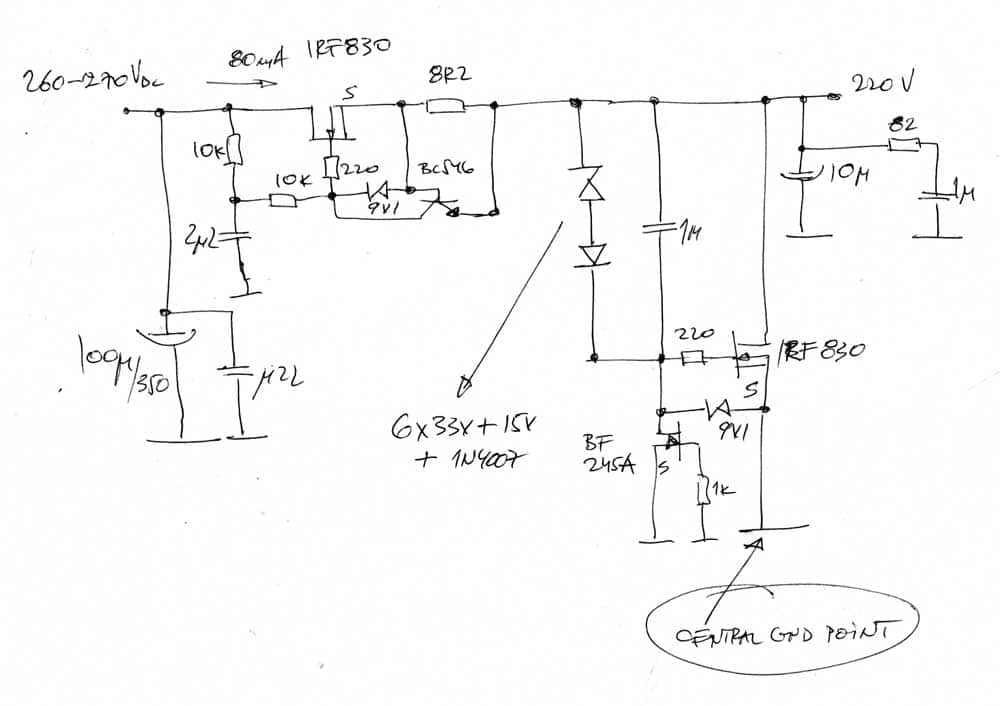 260-270VDC
80mA
IRF830
S
8R2
220V
10K
220
BC546
82
10K
9V1
10µ
1µ
2µ2
1µ
100µ/350
µ22
220
IRF830
S
6x33V+15V
+ 1N4007
9V1
BF
245A
S
1K
CENTRAL GND POINT